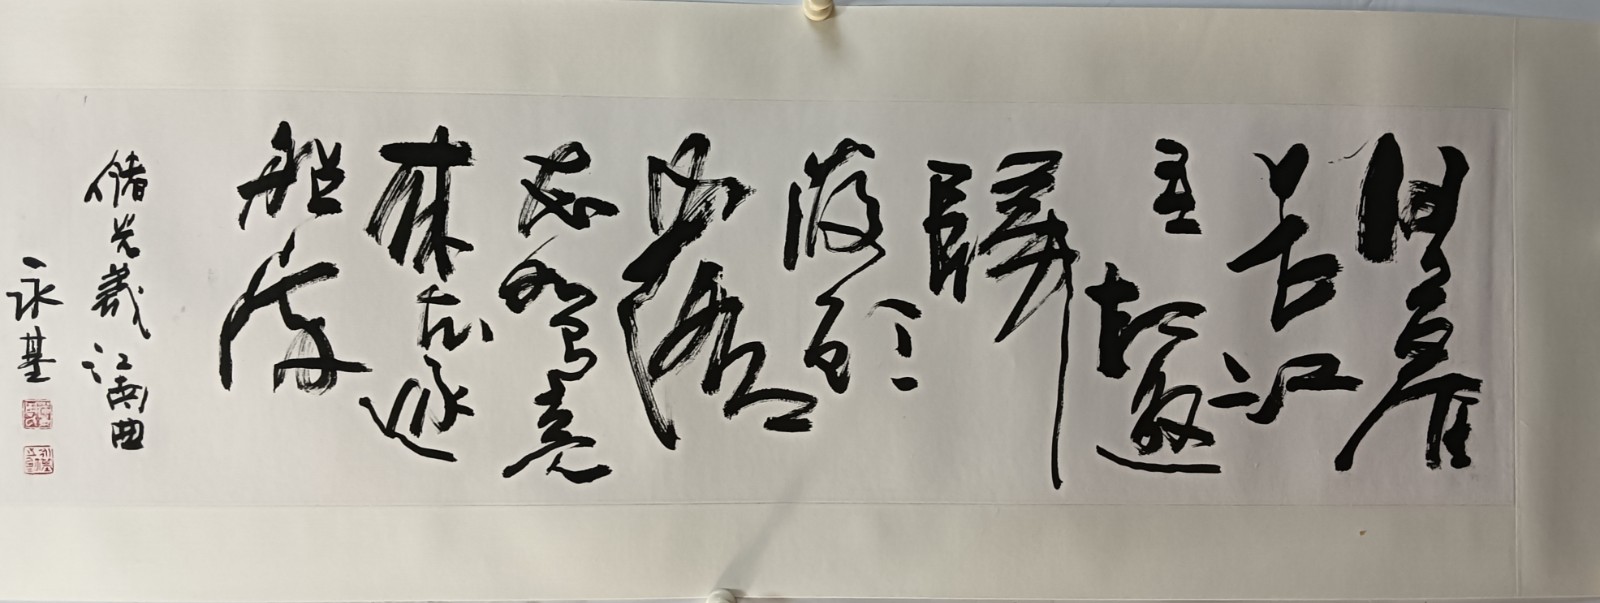 日暮
长江
里相邀
歸
渡头
落
花如有意
来去逐
船流
储光羲江南曲
永基